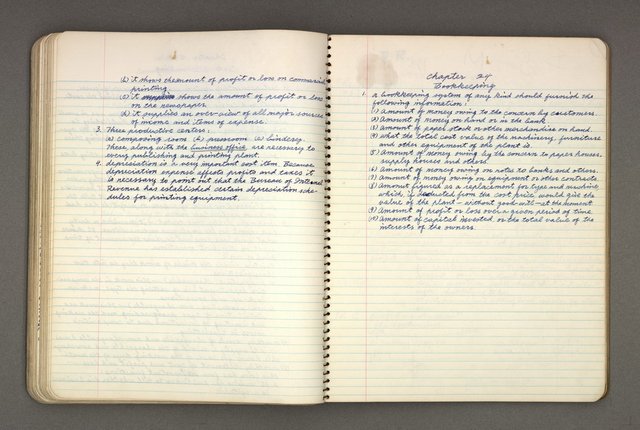 (b) It shows the amount of profit or loss on commercial
printing.
(c) It shows the amount of profit or loss
on the newspaper.
(d) It supplies an over-view of all major sources
of income and items of expense.
3. Three productive centers:
(a) composing room (b) pressroom (c) bindery.
These along with the business office are necessary to
every publishing and printing plant.
4. depreciation is a very important cost item. Because
depreciation expense effects profits and taxes it
is necessary to point out that the Bureau of Internal
Revenue has established certain depreciation sche-
dules for printing equipment.
Chapter 24
Bookkeeping
1. a bookkeeping system of any kind should furnish the
following information:
(1) amount of money owing to the concern by customers.
(2) amount of money on hand or in the bank
(3) amount of paper stock or other merchandise on hand.
(4) what the total cost value of the machinery, furniture
and other equipment of the plant is.
(5) Amount of money owing by the concern to paper houses,
supply houses and others.
(6) Amount of money owing on notes to banks and others.
(7) Amount of money owing on equipment or other contracts
(8) amount figured as a replacement for type and machine
which, if deducted from the cost price would give the
value of the plant - without good-will - at the moment
(9) amount of profit or loss over a given period of time.
(10) amount of capital invested or the total value of the
interests of the owners.